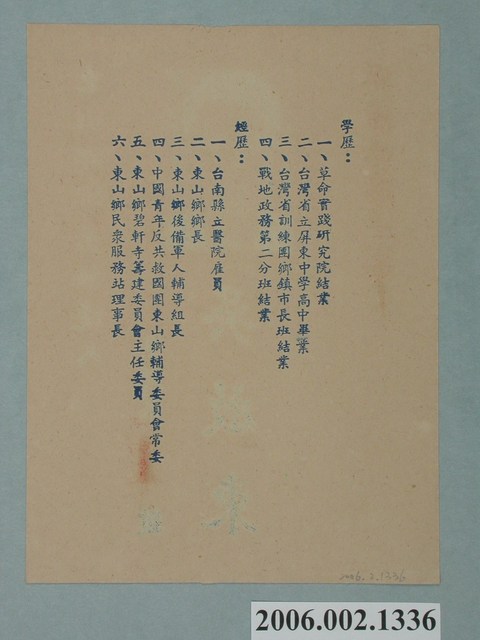 學歷：
一、革命實踐研究院結業
二、台灣省立屏東中學高中畢業
三、台灣省訓練團鄉鎮市長班結業
四、戰地政務第二分班結業
經歷：
一、台南縣立醫院雇員
二、東山鄉鄉長
三、東山鄉後備軍人輔導組長
四、中國青年反共救國團東山鄉輔導委員會常委
五、東山鄉碧軒寺籌建委員會主任委員
六、東山鄉民眾服務站理事長
2006.2.1336
2006.002.1336